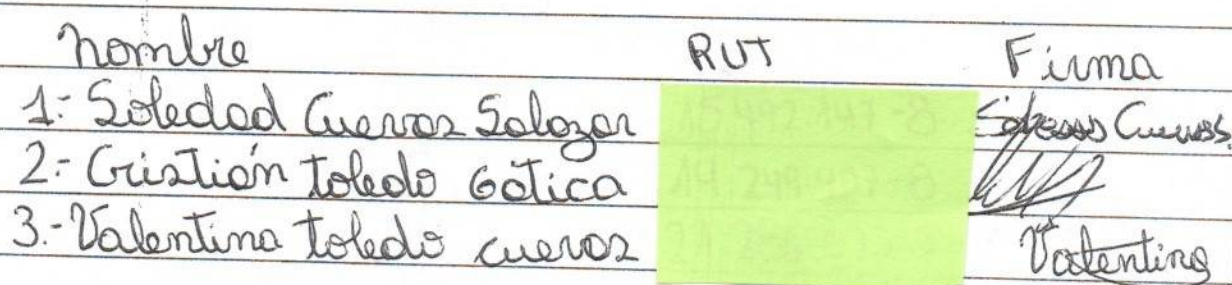 nombre RUT Firma
1: Soledad Cuevas Salazar Soledad Cuevas.
2: Cristión toledo Gótica
3.- Valentina toledo cuevas Valentina